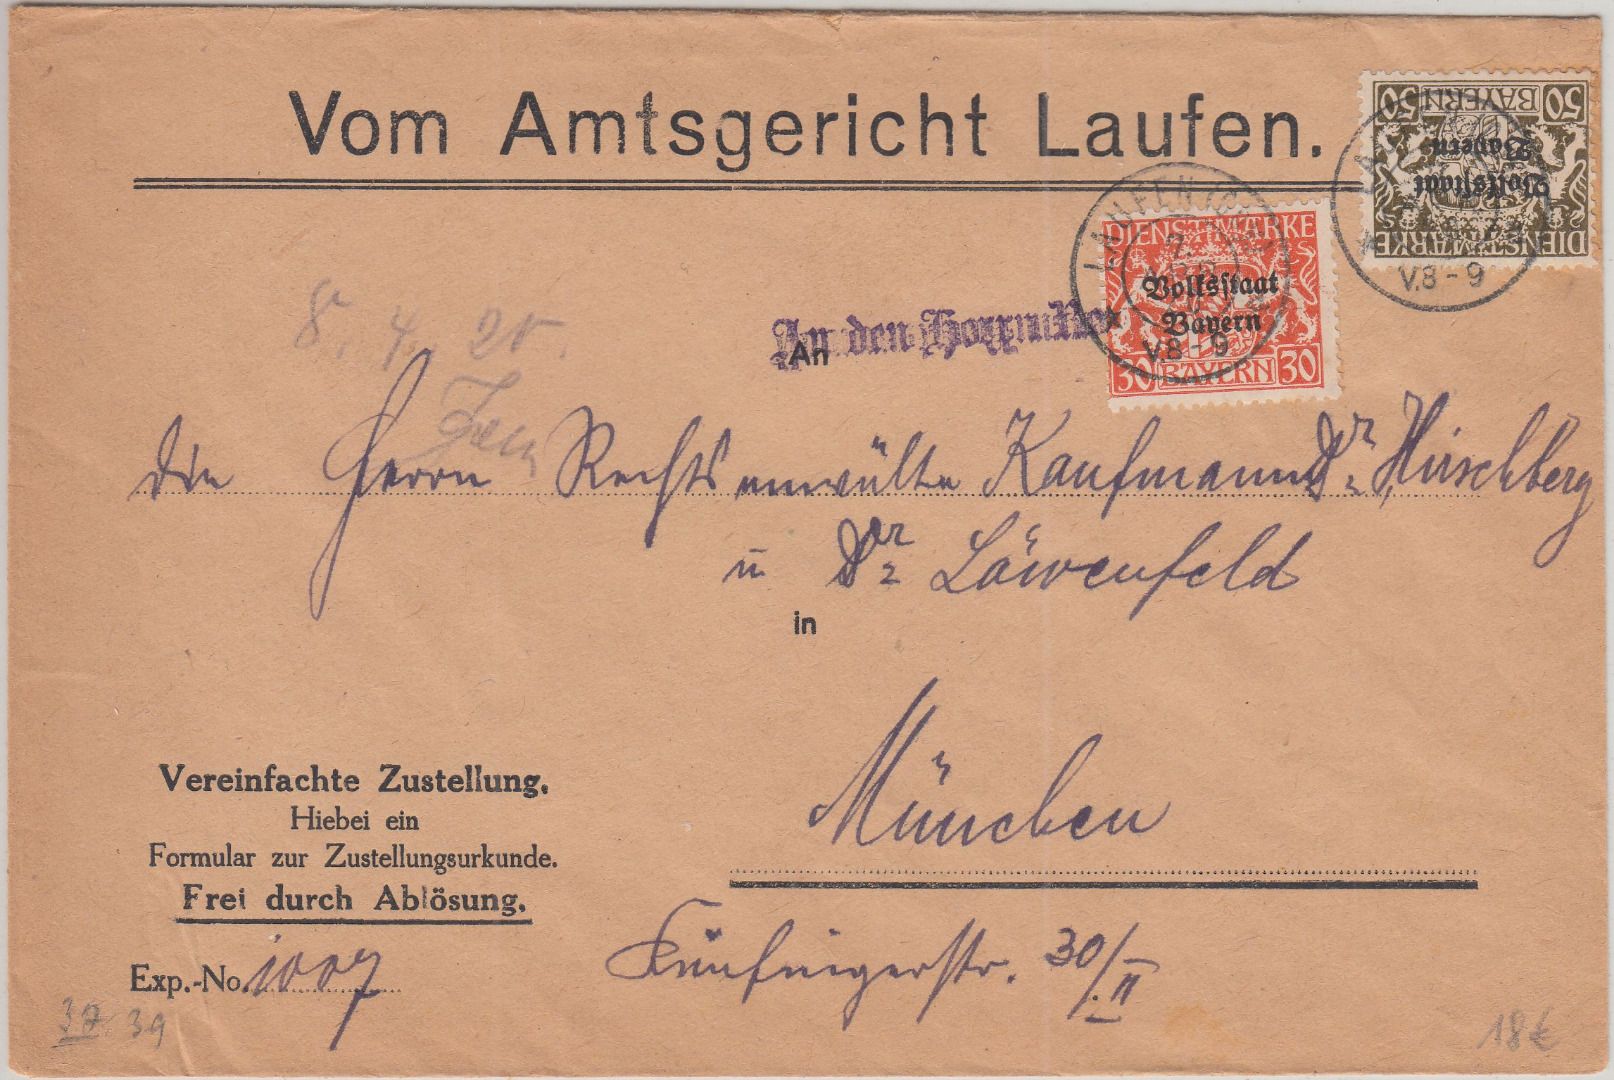 Vom Amtsgericht Laufen.
50 BAYERN 50
Volksstaat
Bayern
DIENSTMARKE
V.8-9
LAUFEN
7.
DIENSTMARKE
Volksstaat
Bayern
V.8-9
30 BAYERN 30
8. 4. 20.
An den Herrn
An
die Herrn Rechtsanwälte Kaufmann Dr. Hirschberg
u Dr. Löwenfeld
in
München
Vereinfachte Zustellung.
Hiebei ein
Formular zur Zustellungsurkunde.
Frei durch Ablösung.
Exp.-No. 1007
30/II
37 39
18€